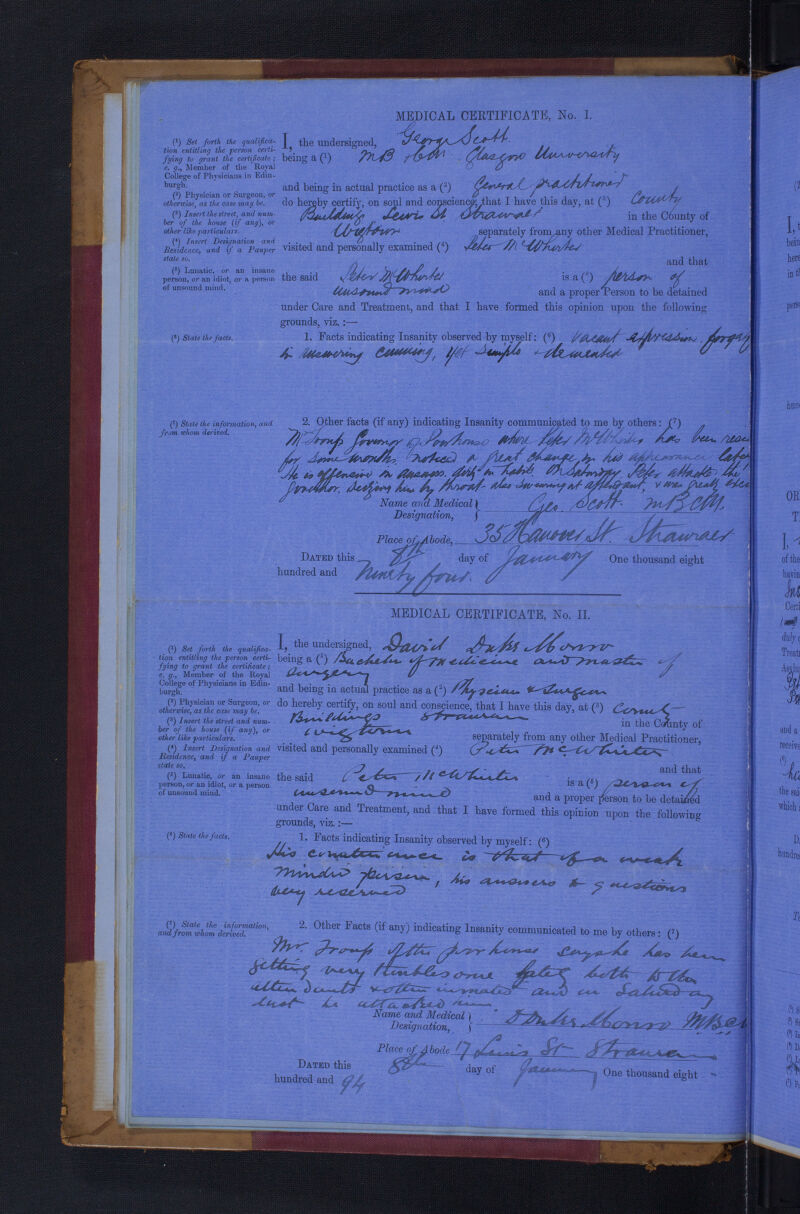 MEDICAL CERTIFICATE, No. I.
(1) Set forth the qualifica-
tion entitling the person certi-
fying to grant the certificate;
e. g., Member of the Royal
College of Physicians in Edin-
burgh.
(2) Physician or Surgeon, or
otherwise, as the case may be.
(3) Insert the street, and num-
ber of the house (if any), or
other like particulars.
(4) Insert Designation and
Residence, and if a Pauper
state so.
(5) Lunatic, or an insane
person, or an idiot, or a person
of unsound mind.
I, the undersigned, George Scott
being a (1) M B & CM. Glasgow University
and being in actual practice as a (2) General practitioner
do hereby certify, on soul and conscience, that I have this day, at (3) County
Buildings Lewis St Stranraer in the County of
Wigtown separately from any other Medical Practitioner,
visited and personally examined (4) Peter McWhirter
and that
the said Peter McWhirter is a (5) person of
unsound mind and a proper Person to be detained
under Care and Treatment, and that I have formed this opinion upon the following
grounds, viz. :—
(6) State the facts.
1. Facts indicating Insanity observed by myself: (6) vacant expression,
in answering cunning, yet simple & demented
(7) State the information, and
from whom derived.
2. Other facts (if any) indicating Insanity communicated to me by others: (7)
Mr Troup Governor of Poorhouse where Peter McWhirter has been
for some months, noticed a great change in his appearance
He is offensive in dirty in habits On Saturday Peter attacked the
Governor, seizing him by throat also swearing at & was greatly
Name and Medical
Designation, Geo. Scott M B CM.
Place of Abode, 35 Hanover St. Stranraer
DATED this 8th day of January One thousand eight
hundred and Ninety four.
MEDICAL CERTIFICATE, No. II.
(1) Set forth the qualifica-
tion entitling the person certi-
fying to grant the certificate;
e. g., Member of the Royal
College of Physicians in Edin-
burgh.
(2) Physician or Surgeon, or
otherwise, as the case may be.
(3) Insert the street and num-
ber of the house (if any), or
other like particulars.
(4) Insert Designation and
Residence, and if a Pauper
state so.
(5) Lunatic, or an insane
person, or an idiot, or a person
of unsound mind.
I, the undersigned, David Duke Monro
being a (1) Bachelor of medicine and master of
surgery
and being in actual practice as a (2) Physician & Surgeon
do hereby certify, on soul and conscience, that I have this day, at (3) County
Buildings Stranraer in the County of
Wigtown separately from any other Medical Practitioner,
visited and personally examined (4) Peter McWhirter
and that
the said Peter McWhirter is a (5) person of
unsound mind and a proper Person to be detained
under Care and Treatment, and that I have formed this opinion upon the following
grounds, viz. :—
(6) State the facts.
1. Facts indicating Insanity observed by myself: (6)
His countenance is that of a weak
minded person, his answers to questions
very reserved
(7) State the information,
and from whom derived.
2. Other Facts (if any) indicating Insanity communicated to me by others: (7)
Mr. Troup of the poorhouse says he has been
getting very troublesome lately both to the
attendants & other inmates and on Saturday
last he attacked him
Name and Medical
Designation, D Duke Monro M.B.CM
Place of Abode 17 Lewis St Stranraer
DATED this 8th day of January One thousand eight
hundred and 94